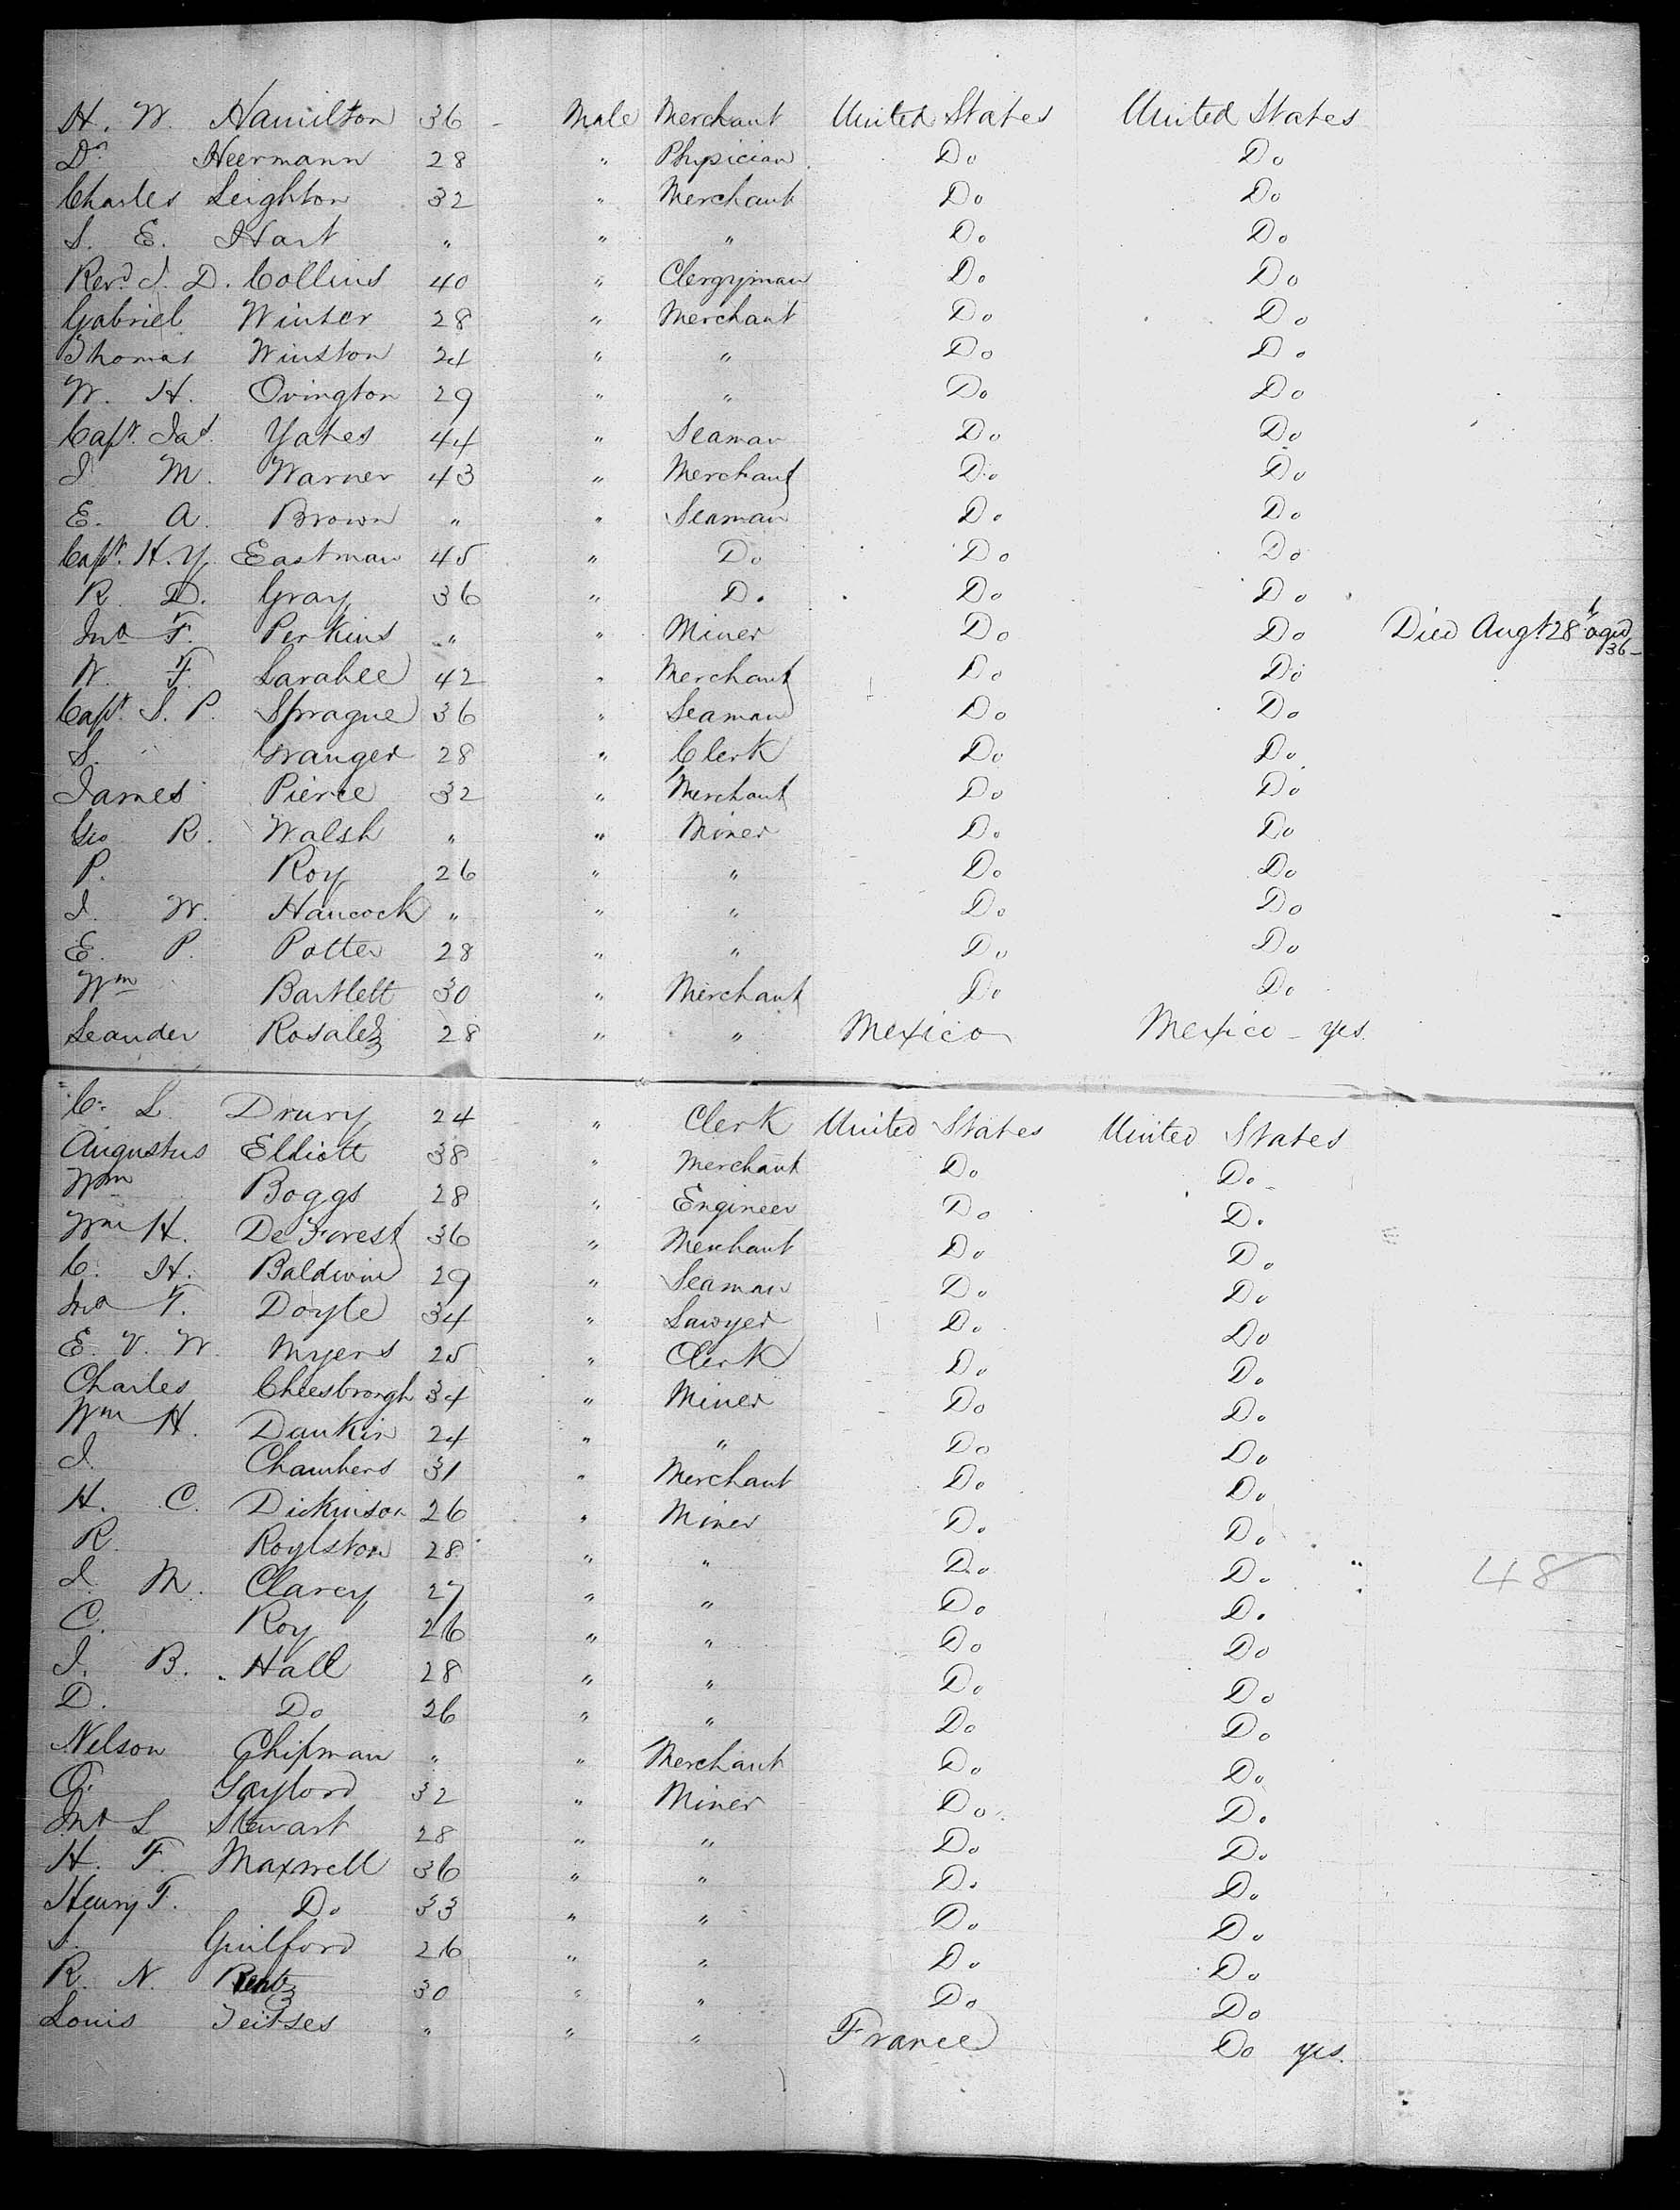 H. W. Hamilton 36 - Male Merchant United States United States
Dr Heermann 28 " Physician Do Do
Charles Leighton 32 " Merchant Do Do
S. E. Hart " " " Do Do
Revd J. D. Collins 40 " Clergyman Do Do
Gabriel Winter 28 " Merchant Do Do
Thomas Winston 24 " " Do Do
W. H. Ovington 29 " " Do Do
Capt. Jas. Yates 44 " Seaman Do Do
J. M. Warner 43 " Merchant Do Do
E. A. Brown " " Seaman Do Do
Capt. H. Y. Eastman 45 " Do Do Do
R. D. Gray 36 " Do Do Do
Jno F. Perkins " " Miner Do Do Died Augt 28th aged 36-
W. F. Larabee 42 " Merchant Do Do
Capt. S. P. Sprague 36 " Seaman Do Do
S. Granger 28 " Clerk Do Do
James Pierce 32 " Merchant Do Do
Geo R. Walsh " " Miner Do Do
P. Roy 26 " " Do Do
J. W. Hancock " " " Do Do
E. P. Potter 28 " " Do Do
Wm Bartlett 30 " Merchant Do Do
Leander Rosalez 28 " " Mexico Mexico - yes.
C. L. Drury 24 " Clerk United States United States
Augustus Elliott 38 " Merchant Do Do
Wm Boggs 28 " Engineer Do Do
Wm H. De Forest 36 " Merchant Do Do
C. H. Baldwin 29 " Seaman Do Do
Jno T. Doyle 34 " Lawyer Do Do
E. V. W. Myers 25 " Clerk Do Do
Charles Cheesbrough 34 " Miner Do Do
Wm H. Dankin 24 " " Do Do
J. Chambers 31 " Merchant Do Do
H. C. Dickinson 26 " Miner Do Do
R. Roylston 28 " " Do Do 48
J. M. Clarey 27 " " Do Do
C. Roy 26 " " Do Do
J. B. Hall 28 " " Do Do
D. Do 26 " " Do Do
Nelson Chipman " " Merchant Do Do
G. Gaylord 32 " Miner Do Do
Jno L Stewart 28 " " Do Do
H. F. Maxwell 36 " " Do Do
Henry F. Do 33 " " Do Do
S. Guilford 26 " " Do Do
R. N. 30 " " Do Do
Louis " " " France Do yes.